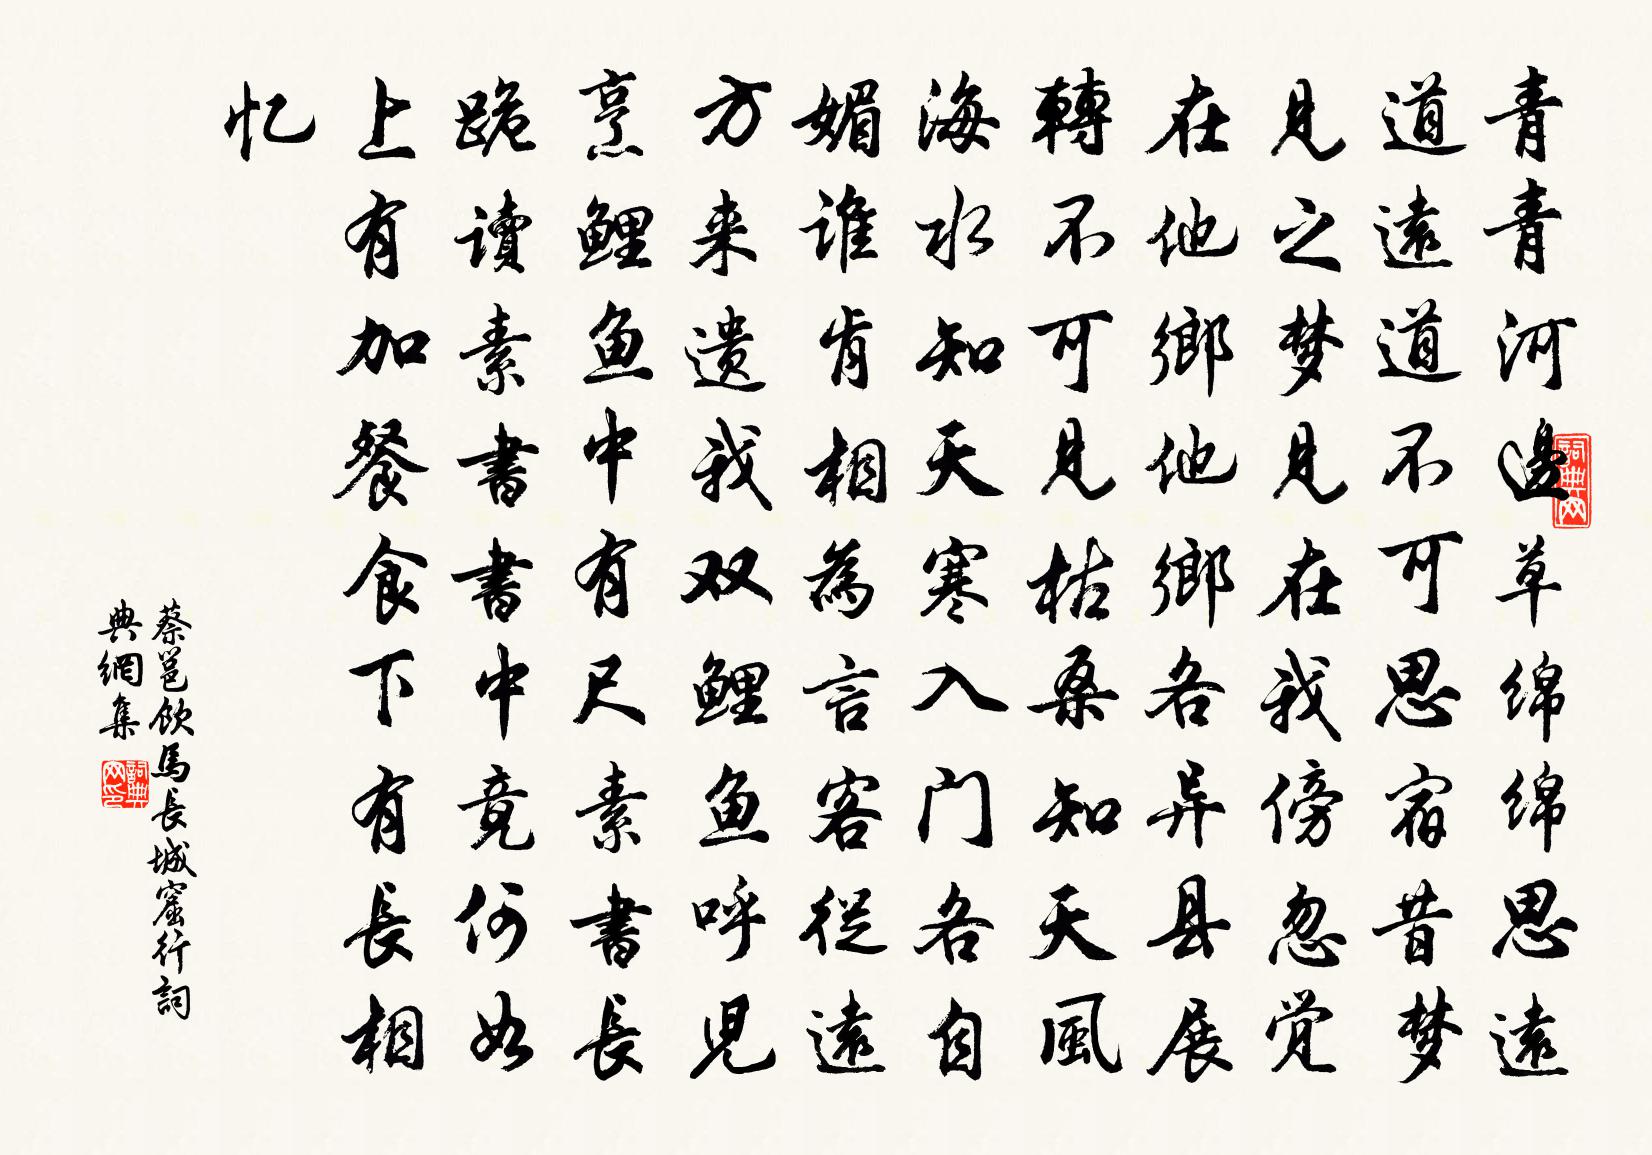 青青河邊草绵绵思遠
道遠道不可思宿昔梦
見之梦見在我傍忽觉
在他鄉他鄉各异县展
轉不可見枯桑知天風
海水知天寒入门各自
媚谁肯相為言客從遠
方来遗我双鲤鱼呼児
烹鲤鱼中有尺素書長
跪讀素書書中竟何如
上有加餐食下有長相
忆
蔡邕飲馬長城窟行詞
典網集
詞典网
詞典网印